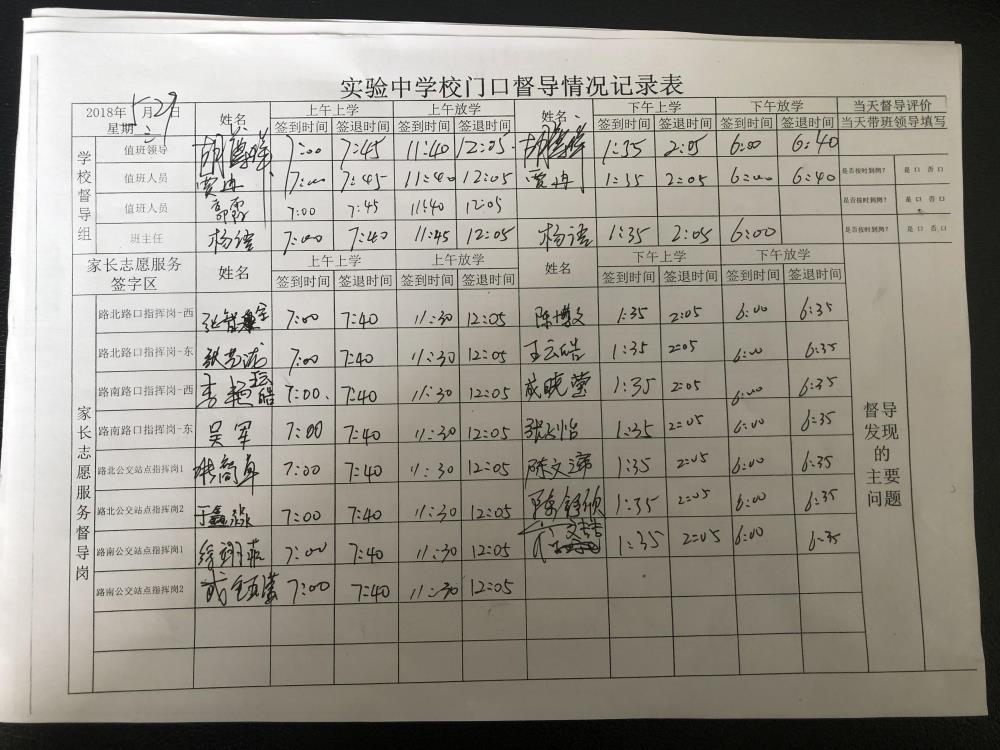 实验中学校门口督导情况记录表
2018年5月29日 星期二 姓名 上午上学 上午放学 姓名 下午上学 下午放学 当天督导评价
签到时间 签退时间 签到时间 签退时间 签到时间 签退时间 签到时间 签退时间 当天带班领导填写
学校督导组
值班领导 7:00 7:45 11:40 12:05 1:35 2:05 6:00 6:40
值班人员 贾冉 7:00 7:45 11:40 12:05 贾冉 1:35 2:05 6:00 6:40 是否按时到岗? 是口 否口
值班人员 7:00 7:45 11:40 12:05 是否按时到岗? 是口 否口
班主任 杨洁 7:00 7:40 11:45 12:05 杨洁 1:35 2:05 6:00 是否按时到岗? 是口 否口
家长志愿服务签字区 姓名 上午上学 上午放学 姓名 下午上学 下午放学
签到时间 签退时间 签到时间 签退时间 签到时间 签退时间 签到时间 签退时间
家长志愿服务督导岗
路北路口指挥岗-西 7:00 7:40 11:30 12:05 陈博文 1:35 2:05 6:00 6:35
路北路口指挥岗-东 7:00 7:40 11:30 12:05 王云皓 1:35 2:05 6:00 6:35
路南路口指挥岗-西 7:00 7:40 11:30 12:05 成晓莹 1:35 2:05 6:00 6:35
路南路口指挥岗-东 吴军 7:00 7:40 11:30 12:05 1:35 2:05 6:00 6:35
路北公交站点指挥岗1 7:00 7:40 11:30 12:05 1:35 2:05 6:00 6:35
路北公交站点指挥岗2 7:00 7:40 11:30 12:05 1:35 2:05 6:00 6:35
路南公交站点指挥岗1 7:00 7:40 11:30 12:05 1:35 2:05 6:00 6:35
路南公交站点指挥岗2 7:00 7:40 11:30 12:05
督导发现的主要问题